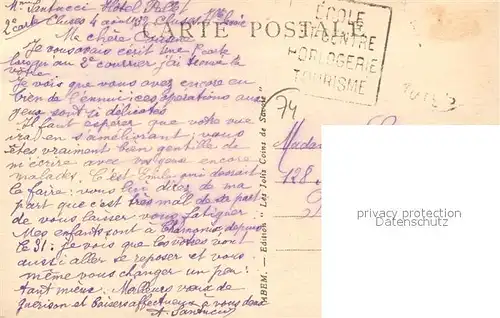 Mme Santucci Hôtel
2e carte Cluses 4 août 32
Ma chère Cousine
CARTE POSTALE
Je vous avais écrit une carte
lorsqu'au 2e courrier j'ai trouvé la
vôtre.
Je vois que vous avez encore eu
bien de l'ennui; ces opérations aux
yeux sont si délicates
Il faut espérer que votre vue
ira en s'améliorant; vous
êtes vraiment bien gentille de
m'écrire avec vos yeux encore
malades. C'est Emile qui devrait
le faire; vous lui direz de ma
part que c'est très mal de sa part
de vous laisser vous fatiguer.
Mes enfants sont à Chamonix depuis
le 31; je vois que les vôtres vont
aussi aller se reposer et vous
même vous changer un peu:
tant mieux. Meilleurs vœux de
guérison et baisers affectueux à vous deux
A. Santucci
ÉCOLE
HORLOGERIE
TOURISME
74
MBEM. — Edition "Les Jolis Coins de Savoie"
Madame
128,
privacy protection
Datenschutz